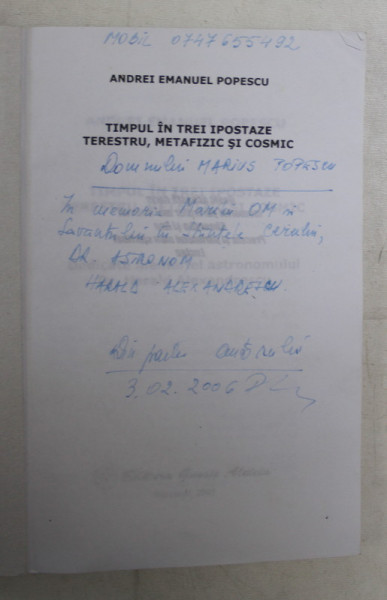 MOBIL 0747655492
ANDREI EMANUEL POPESCU
TIMPUL ÎN TREI IPOSTAZE
TERESTRU, METAFIZIC ŞI COSMIC
Domnului MARIUS POPESCU
În memoria Marelui OM și
Savantului în Științele Cerului,
DR. ASTRONOM
HARALD ALEXANDRESCU.
Din partea autorului
3.02.2006